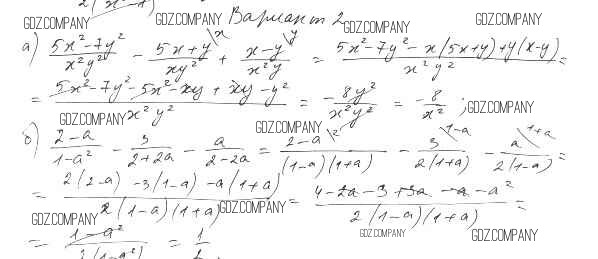 GDZ.COMPANY GDZ.COMPANY Вариант 2 GDZ.COMPANY GDZ.COMPANY
а) (5x² - 7y²)/(x²y²) - (5x + y)/(xy²) \x + (x - y)/(x²y) \y = (5x² - 7y² - x(5x+y) + y(x-y))/(x²y²) =
= (5x² - 7y² - 5x² - xy + xy - y²)/(x²y²) = -8y²/(x²y²) = -8/x² ; GDZ.COMPANY
GDZ.COMPANY GDZ.COMPANY
б) (2-a)/(1-a²) - 3/(2+2a) - a/(2-2a) = (2-a)/((1-a)(1+a)) \2 - 3/(2(1+a)) \1-a - a/(2(1-a)) \1+a =
= (2(2-a) - 3(1-a) - a(1+a))/(2(1-a)(1+a)) = (4-2a-3+3a-a-a²)/(2(1-a)(1+a)) =
GDZ.COMPANY GDZ.COMPANY GDZ.COMPANY GDZ.COMPANY
= (1-a²)/(2(1-a²)) = 1/